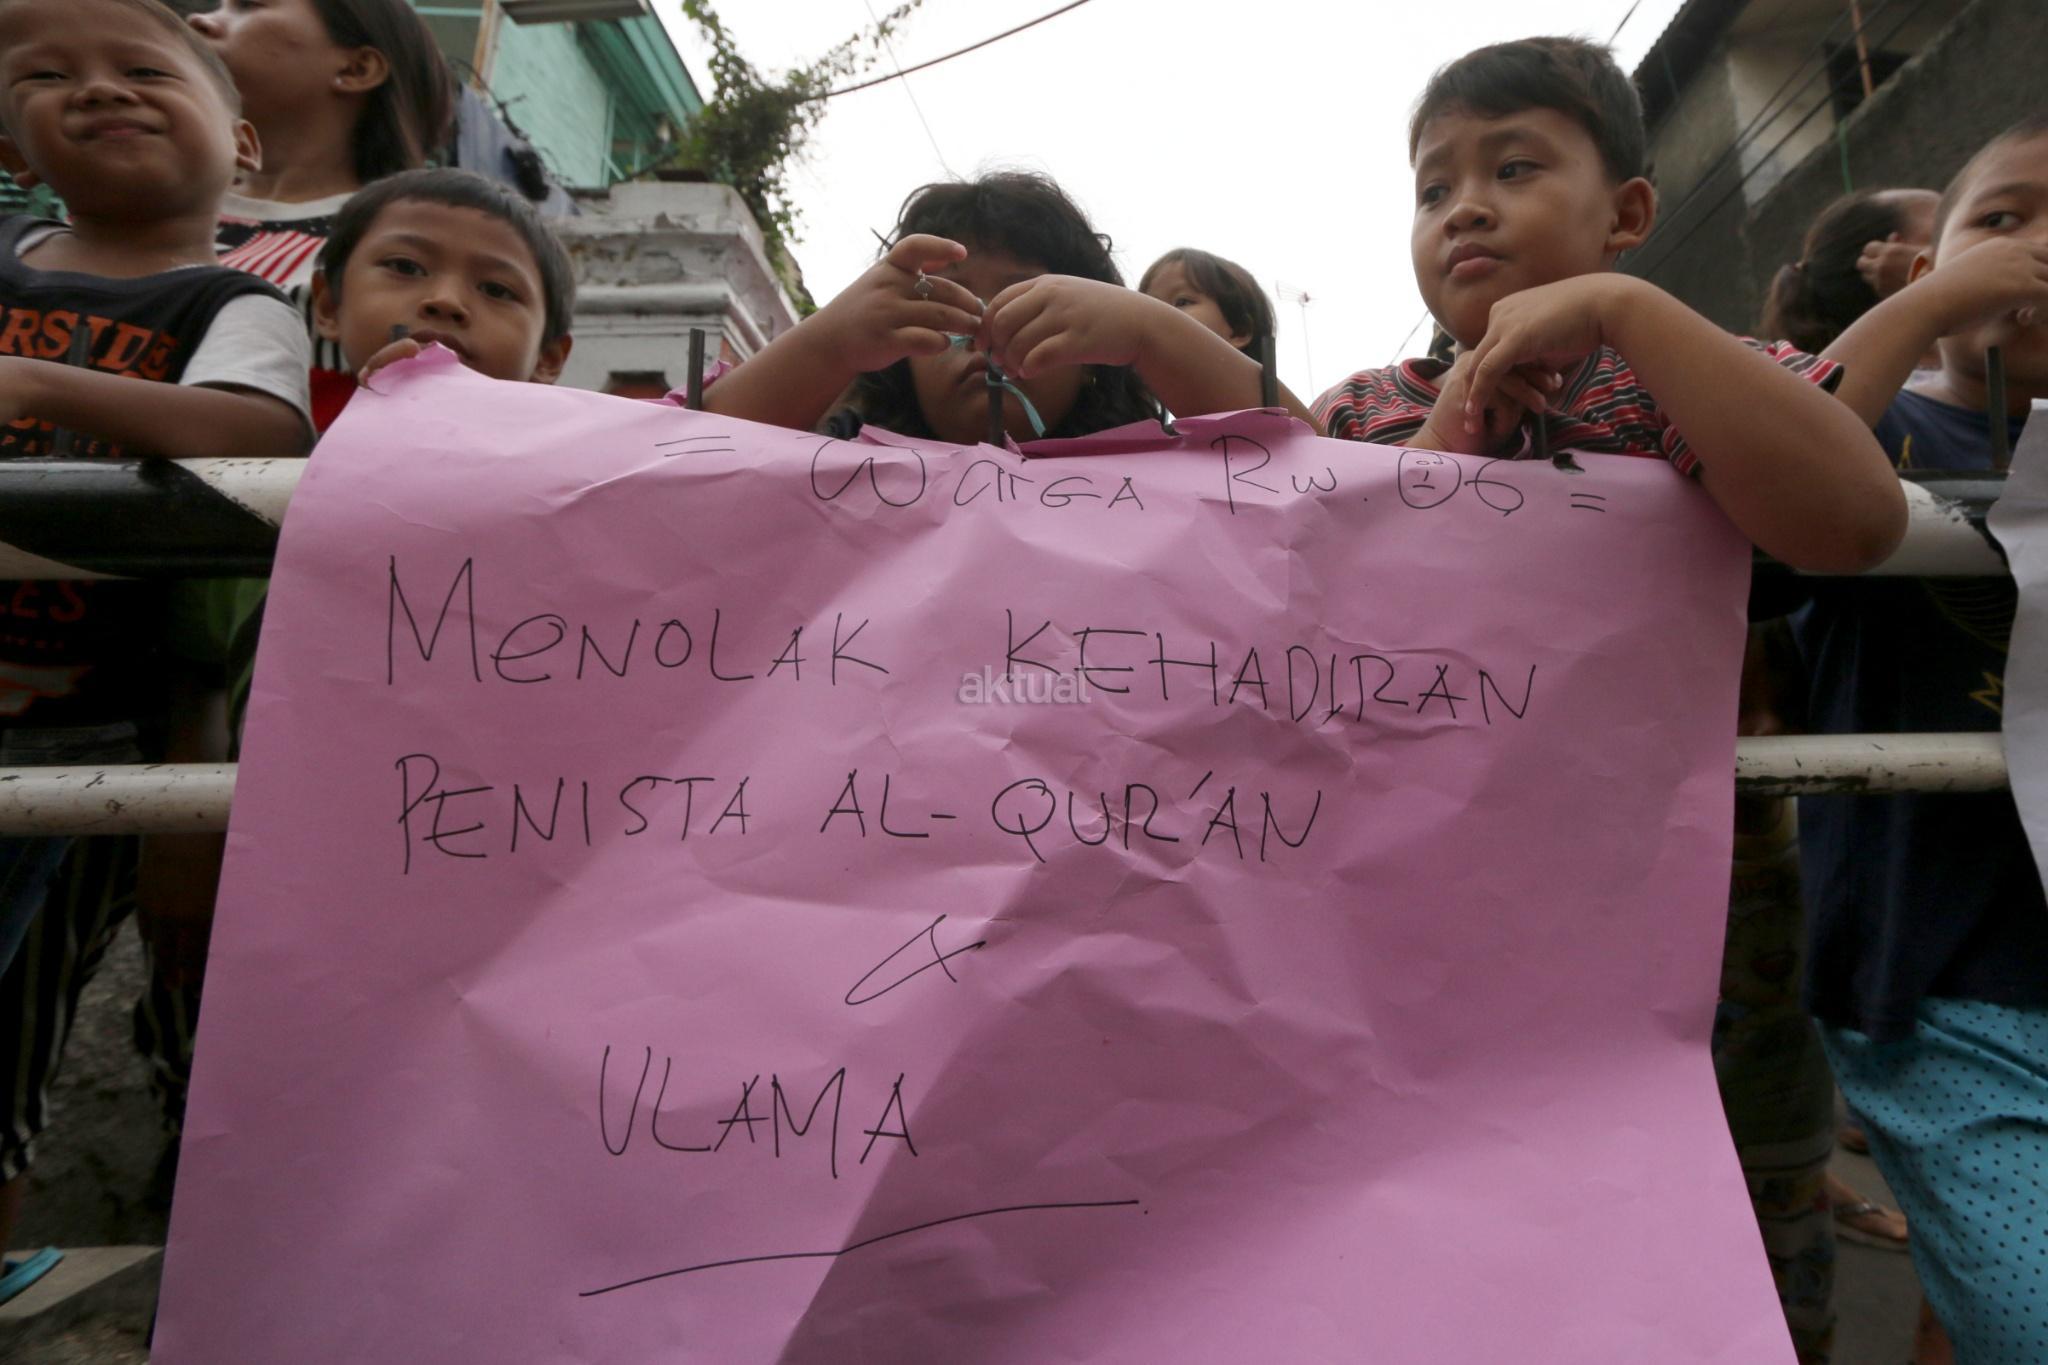 = Warga Rw. 06 =
MeNOLAK KEHADIRAN
aktual
PENISTA AL-QUR'AN
&
ULAMA